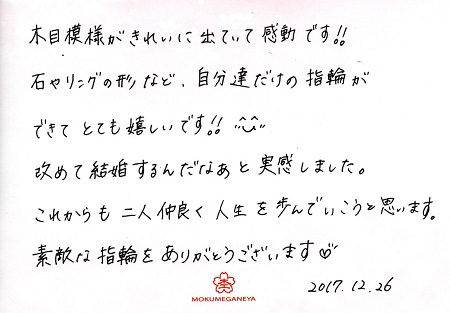 木目模様がきれいに出ていて感動です!!
石やリングの形など、自分達だけの指輪が
できてとても嬉しいです!! ^^
改めて結婚するんだなぁと実感しました。
これからも二人仲良く人生を歩んでいこうと思います。
素敵な指輪をありがとうございます♡
MOKUMEGANEYA
2017.12.26